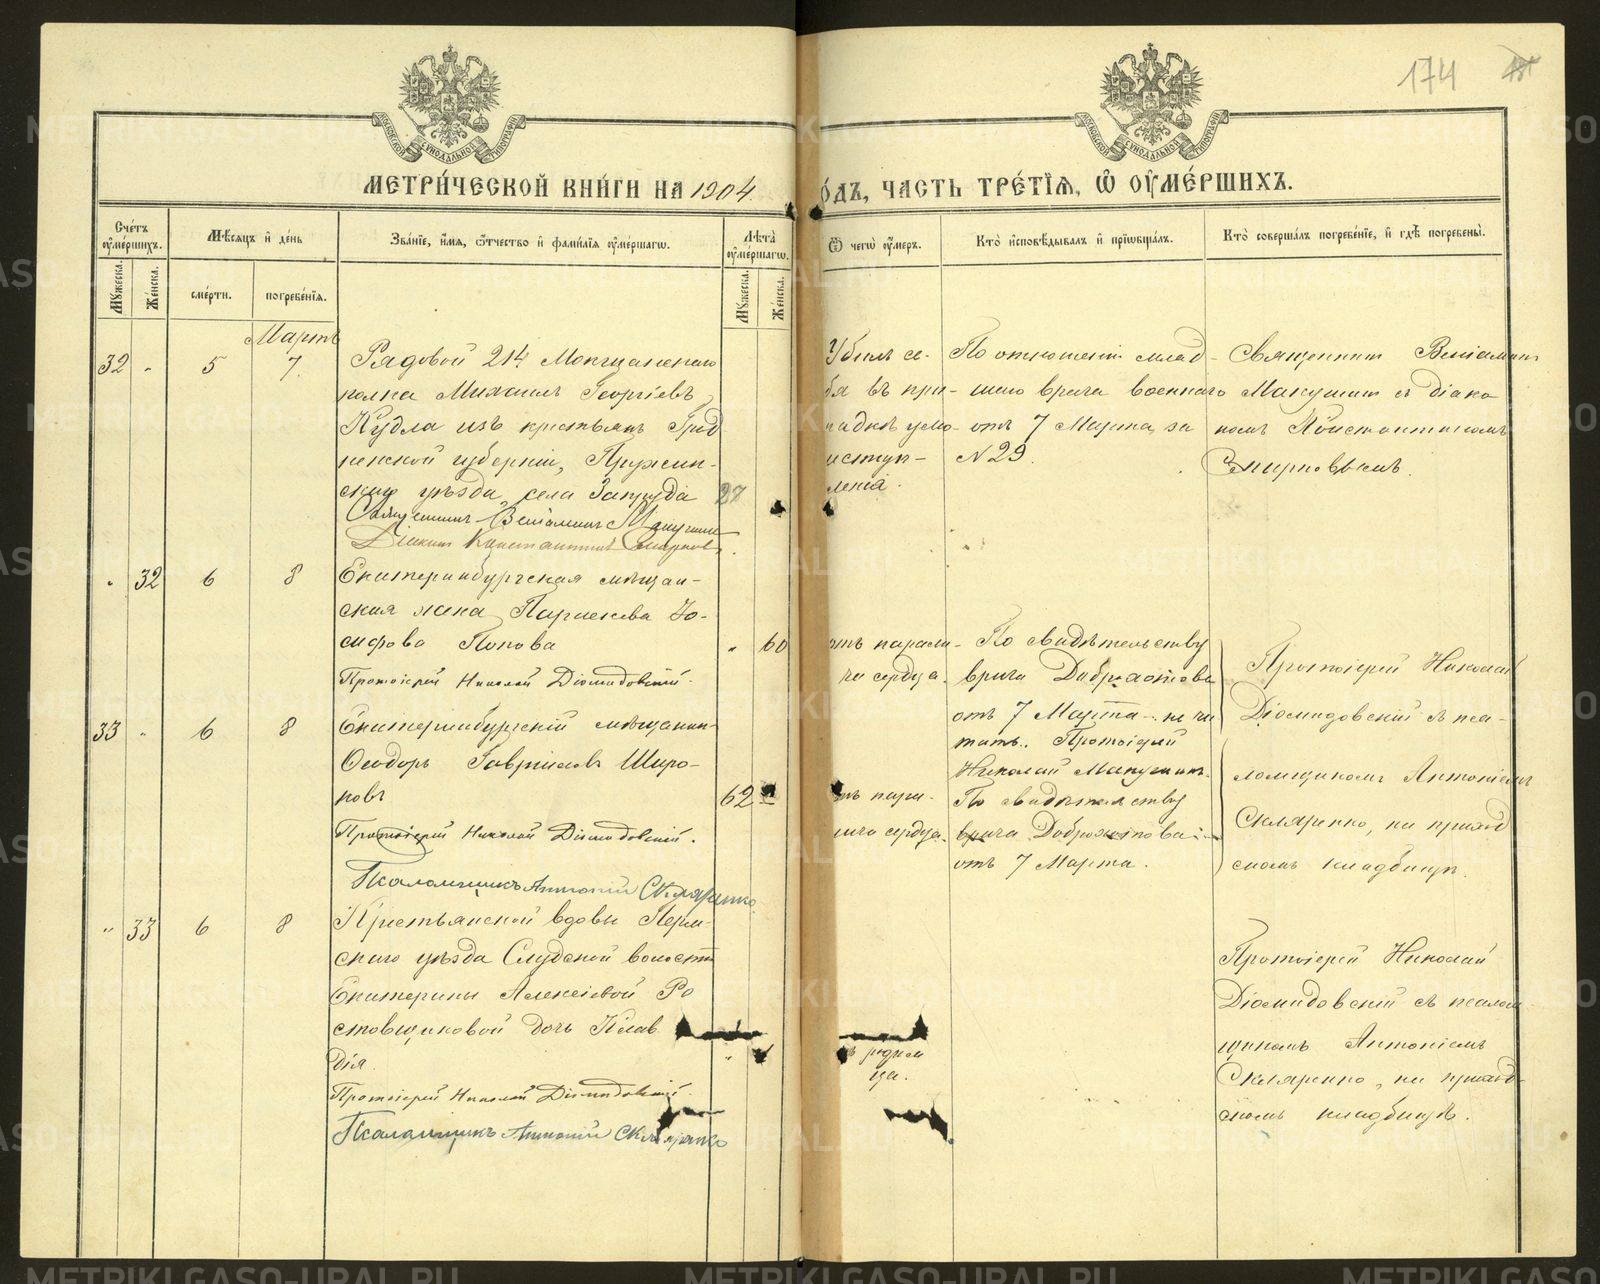 174
МЕТРИ́ЧЕСКОЙ КНИ́ГИ НА 1904
О́ДЪ, ЧАСТЬ ТРЕ́ТЇѦ, Ѿ ОУ҆МЕ́РШИХЪ.
Сче́тъ оу҆ме́ршихъ.
Мѣ́сѧцъ и҆ де́нь
Зва́нїе, и҆́мѧ, ѻ҆́тчество и҆ фами́лїѧ оу҆ме́ршагѡ.
Лѣ́та оу҆ме́ршагѡ.
Ѿ чегѡ̀ оу҆́меръ.
Кто̀ и҆сповѣ́дывалъ и҆ прїѡбща́лъ.
Кто̀ соверша́лъ погребе́нїе, и҆ гдѣ̀ погребены̀.
Мꙋ́жеска.
Же́нска.
сме́рти.
погребе́нїѧ.
Мꙋ́жеска.
Же́нска.
Мартъ
32 " 5 7.
Рядовой 214 Мокшанскаго
полка Михаилъ Георгіевъ
Кудла изъ крестьянъ Грод
ненской губерніи, Пружин-
скаго уѣзда села Запруда 27
Священникъ Веніаминъ Макушинъ
Діаконъ Константинъ Смирновъ.
Убилъ се-
бя въ при-
падкѣ умо-
иступ-
ленія.
По отношенію млад-
шаго врача военнаго
отъ 7 Марта за
№ 29.
Священникъ Веніаминъ
Макушинъ съ діако
номъ Константиномъ
Смирновымъ.
" 32 6 8
Екатеринбургская мѣщан-
ская жена Параскева Іо-
сифова Попова " 60
Протоіерей Николай Діомидовскій.
отъ парали-
ча сердца.
По свидѣтельству
врача Доброхотова
отъ 7 Марта
Протоіерей
Николай Макушинъ.
Протоіерей Николай
Діомидовскій съ пса-
ломщикомъ Антоніемъ
Скляренко, на приход
скомъ кладбищѣ.
33 " 6 8
Екатеринбургскій мѣщанинъ
Ѳеодоръ Гавріиловъ Широ-
ковъ 62
Протоіерей Николай Діомидовскій.
Псаломщикъ Антоній Скляренко.
отъ пара-
лича сердца.
По свидѣтельству
врача Доброхотова
отъ 7 Марта.
" 33 6 8
Крестьянской вдовы Перм-
скаго уѣзда Слудской волости
Екатерины Алексіевой Ро
стовщиковой дочь Клав
дія. "
Протоіерей Николай Діомидовскій.
Псаломщикъ Антоній Скляренко
родим
ца.
Протоіерей Николай
Діомидовскій съ псалом
щикомъ Антоніемъ
Скляренко, на приход-
скомъ кладбищѣ.
METRIKI.GASO-URAL.RU